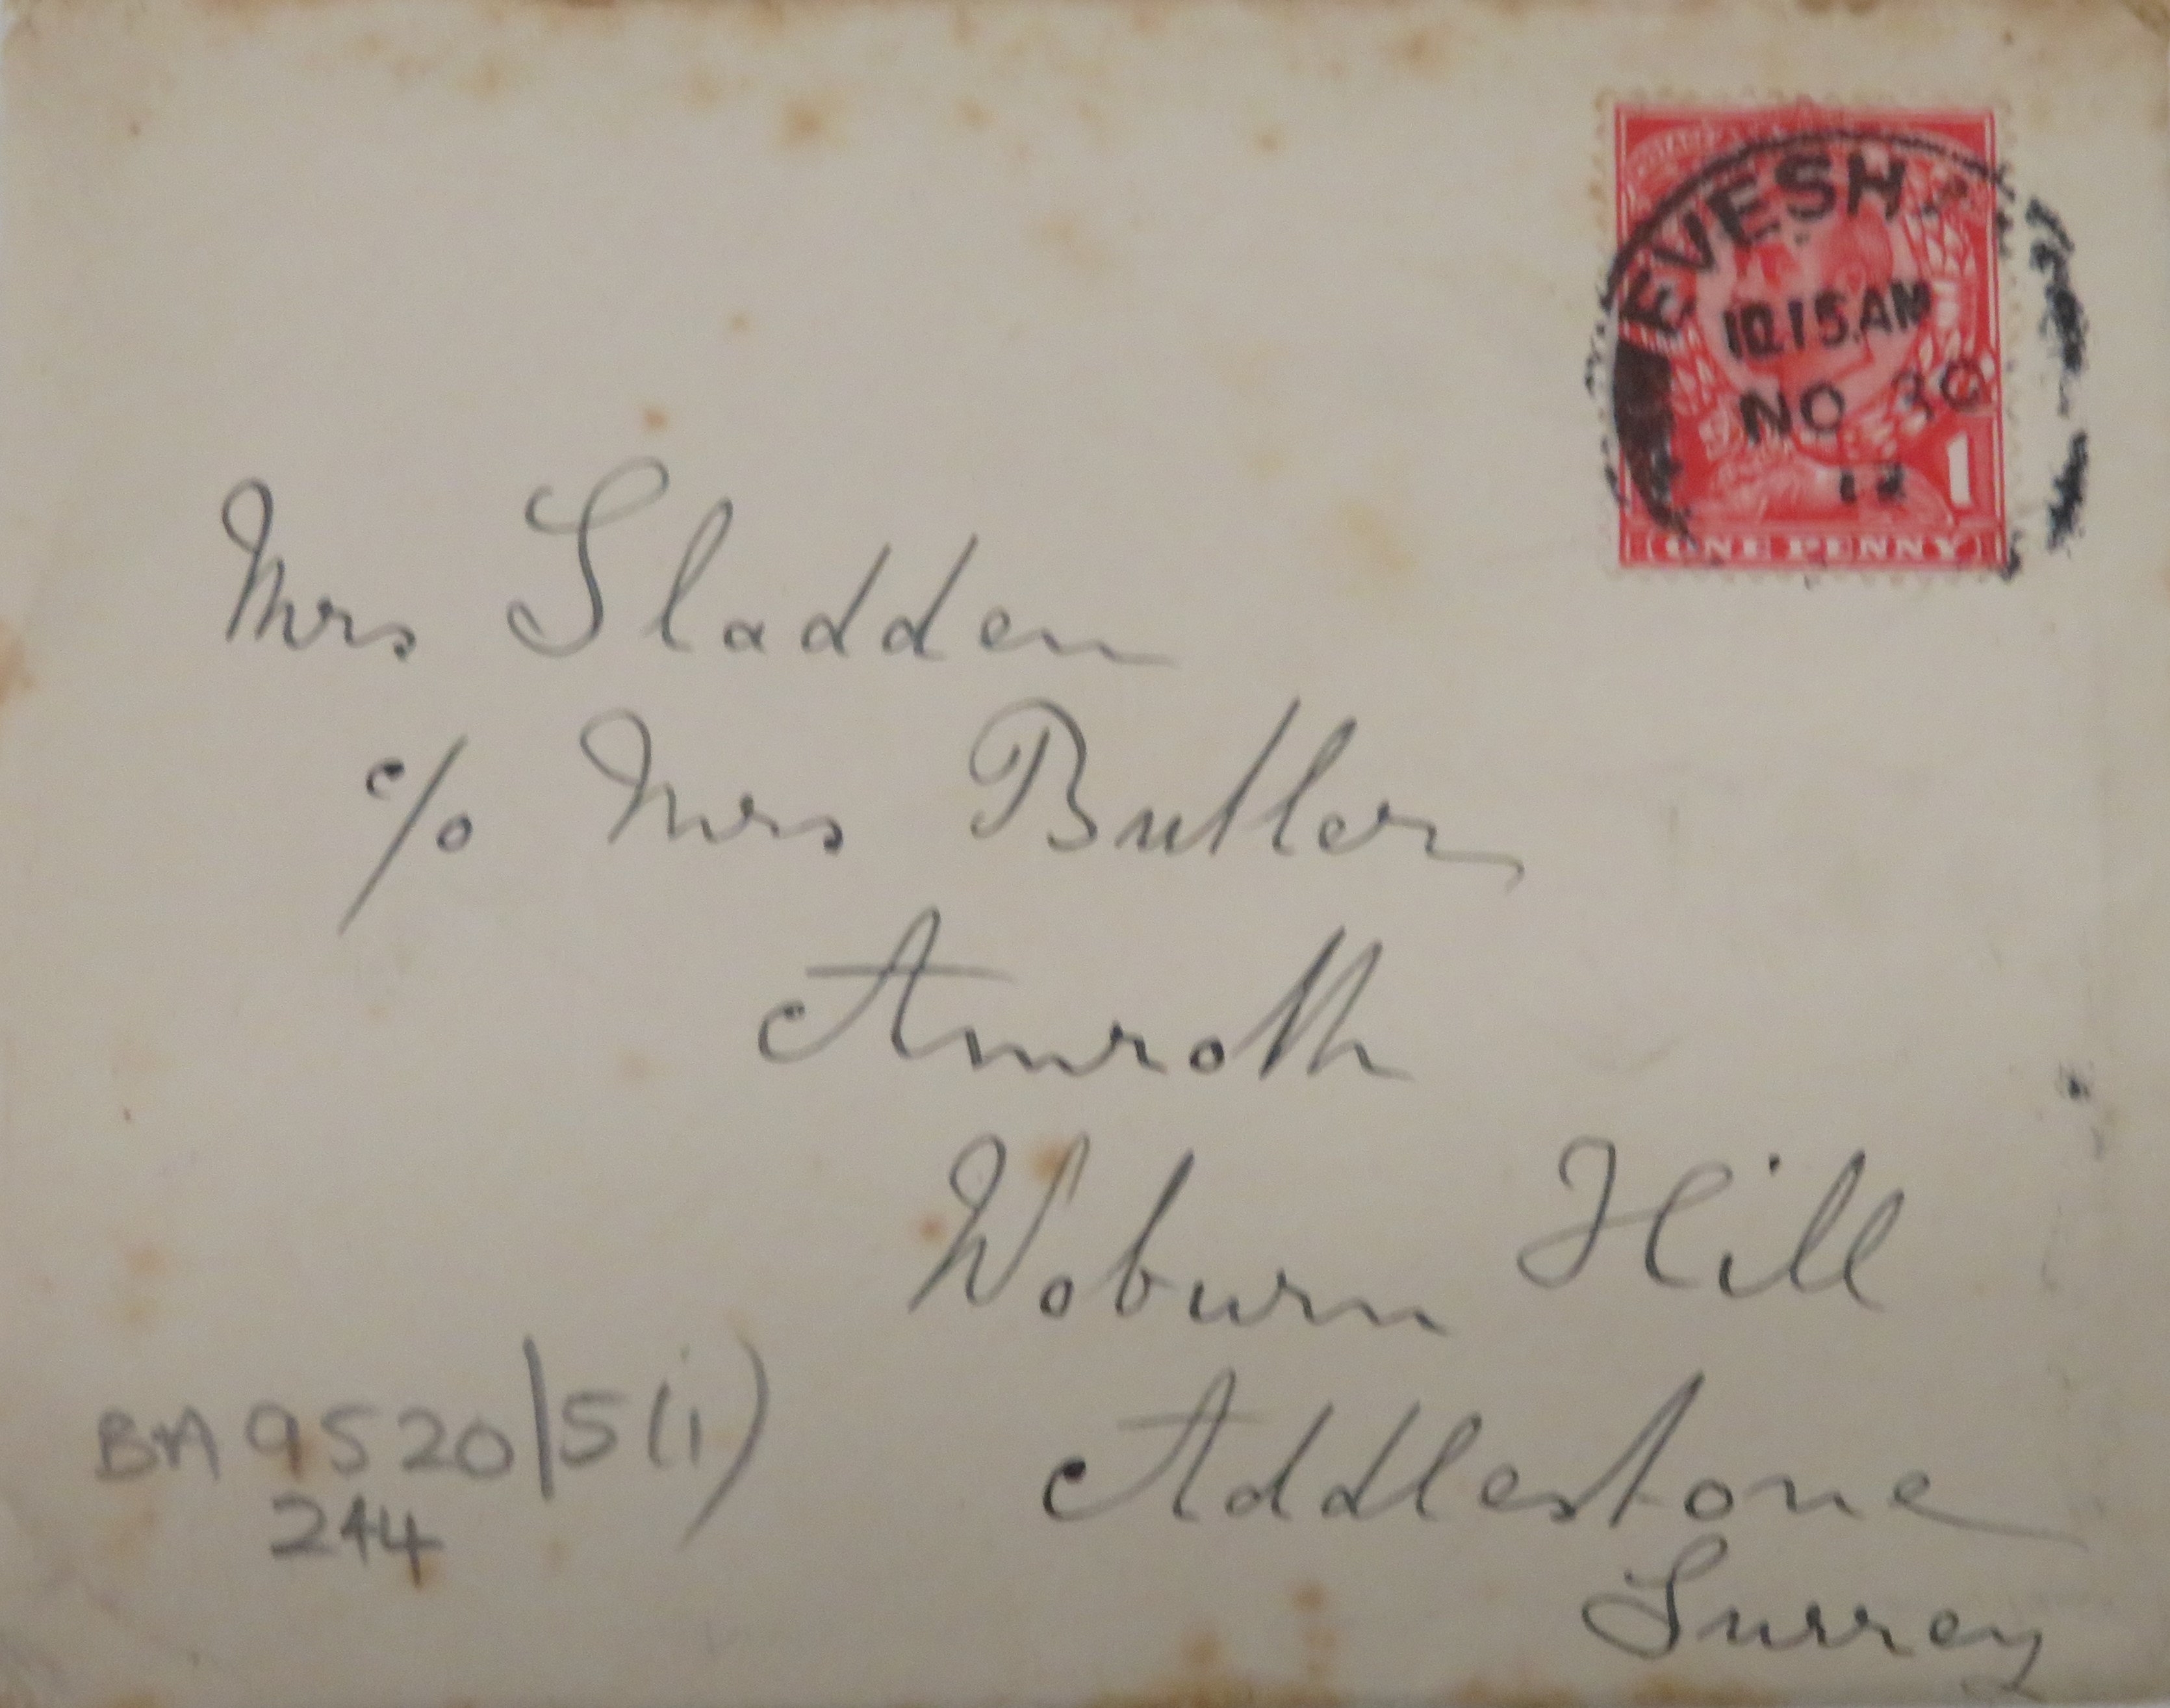 EVESH
10.15 AM
NO 30
12
1
ONE PENNY
Mrs Sladden
c/o Mrs Butler
Amroth
Woburn Hill
Addlestone
Surrey
BA 9520/5(i)
244